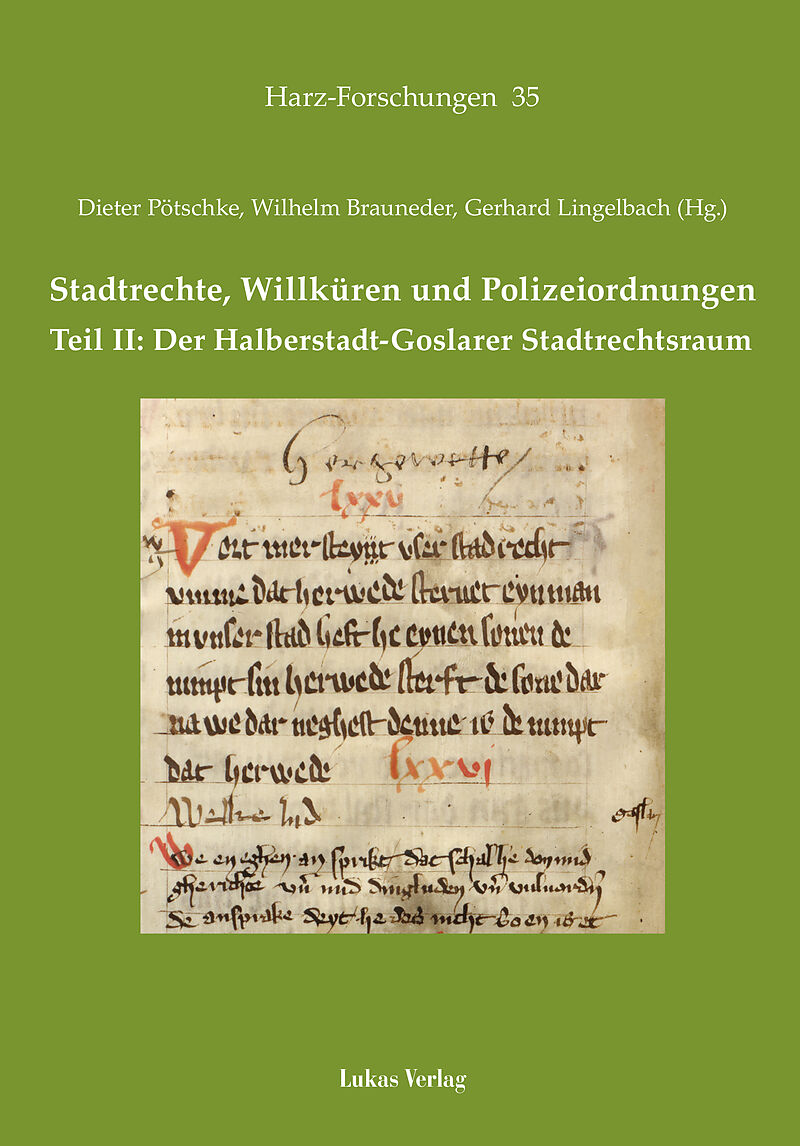 Harz-Forschungen 35
Dieter Pötschke, Wilhelm Brauneder, Gerhard Lingelbach (Hg.)
Stadtrechte, Willküren und Polizeiordnungen
Teil II: Der Halberstadt-Goslarer Stadtrechtsraum
hergewette
lxxv
Vort mer steyt vser stadrecht
vmme dat herwede steruet eyn man
in vnser stad heft he eynen sonen de
nimpt sin herwede sterft de sone dar
na we dar neghest denne is de nimpt
dat herwede lxxvi
Welke
We en eghen an sprikt dat schal he don mid
gherichte vn mid dingluden vn
de ansprake deyt he des nicht so en is et
Lukas Verlag